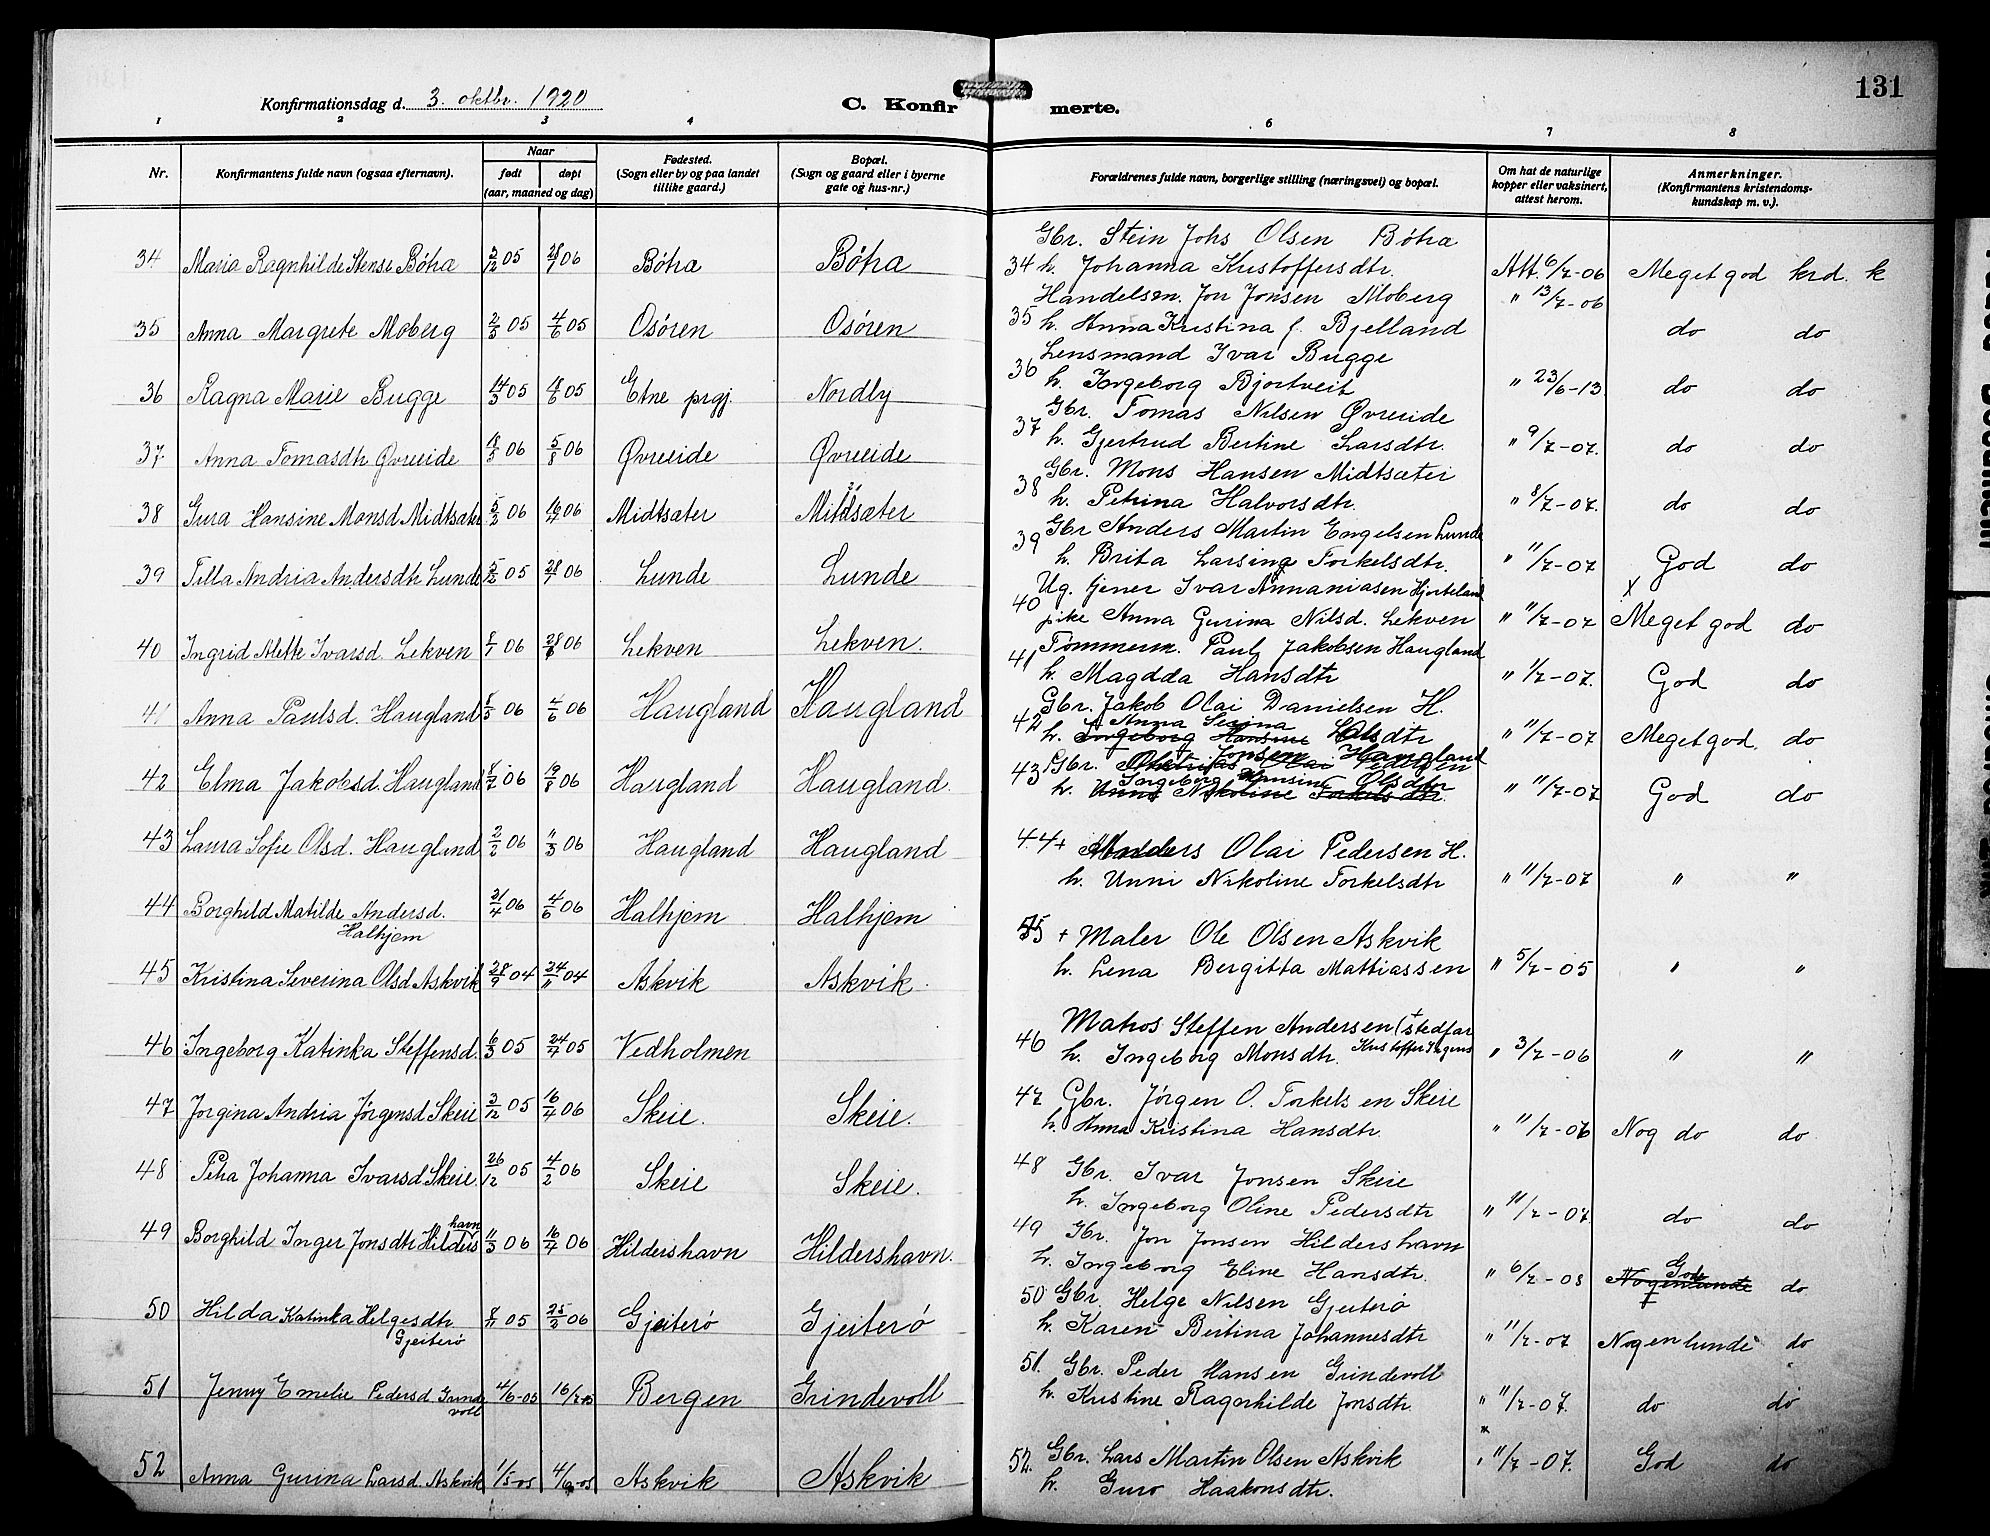 131
Konfirmationsdag d. 3. oktbr. 1920
C. Konfir merte.
1 2 3 4 6 7 8
Nr. Konfirmantens fulde navn (ogsaa efternavn). Naar født døpt (aar, maaned og dag) Fødested. (Sogn eller by og paa landet tillike gaard.) Bopæl. (Sogn og gaard eller i byerne gate og hus-nr.)
Forældrenes fulde navn, borgerlige stilling (næringsvei) og bopæl. Om hat de naturlige kopper eller vaksinert, attest herom. Anmerkninger. (Konfirmantens kristendoms-kundskap m. v.).
34 Maria Ragnhilde Stensd Bøtra 3/12 05 28/1 06 Bøtra Bøtra
35 Anna Margrete Moberg 2/5 05 4/6 05 Osøren Osøren
36 Ragna Marie Bugge 14/5 05 18/6 05 Etne prgj. Nordly
37. Anna Tomasdtr Øvreeide 18/5 06 5/8 06 Øvreeide Øvreeide
38 Gura Hansine Monsd Midtsæter 5/2 06 16/4 06 Midtsæter Midtsæter
39 Tilla Andria Andersdtr Lunde 5/12 05 28/1 06 Lunde Lunde
40 Ingrid Alette Ivarsd. Lekven 8/1 06 28/ 06 Lekven Lekven.
41 Anna Paulsd. Haugland 8/5 06 4/6 06 Haugland Haugland
42 Elma Jakobsd. Haugland 8/7 06 19/8 06 Haugland Haugland.
43 Laura Sofie Olsd. Haugland 2/2 06 11/3 06 Haugland Haugland
44 Borghild Matilde Andersd. Halhjem 21/4 06 4/6 06 Halhjem Halhjem
45 Kristina Severina Olsd Askvik 28/9 04 24/11 04 Askvik Askvik.
46 Ingeborg Katinka Steffensd. 6/3 05 24/4 05 Vedholmen
47 Jorgina Andria Jørgensd Skeie 3/12 05 16/4 06 Skeie. Skeie.
48 Petra Johanna Ivarsd Skeie. 26/12 05 4/2 06 Skeie Skeie.
49 Borghild Inger Jonsdtr Hilders havn 11/3 06 16/4 06 Hildershavn Hildershavn.
50 Hilda Katinka Helgesdtr Gjeiterø 8/11 05 25/2 06 Gjeiterø Gjeiterø
51 Jenny Emelie Pedersd Grinde voll 4/6-05 16/7-05 Bergen Grindevoll
52 Anna Gurina Larsd. Askvik 1/5-05 4/6-05 Askvik Askvik
Gbr. Stein Johs Olsen Bøtra
34 h. Johanna Kristoffersdtr. Att. 6/7-06 Meget god krd. k
Handelsm. Jon Jonsen Moberg " 13/7-06
35 h. Anna Kristina f. Bjelland do do
Lensmand Ivar Bugge
36 h. Ingeborg Bjortveit " 23/6-13 do do
Gbr. Tomas Nilsen Øvreeide
37 h. Gjertrud Bertine Larsdtr. " 9/7-07. do do
Gbr. Mons Hansen Midtsæter
38 h. Petrina Halvorsdtr. " 8/7-07. do do
Gbr Anders Martin Engelsen Lunde
39 h. Brita Larsina Torkelsdtr. " 11/7-07 God do
Ug. tjener Ivar Annaniasen Hjorteland x
40 pike Anna Gurina Nilsd. Lekven " 11/7-07 Meget god do
Tømmerm. Paul Jakobsen Haugland
41 h. Magdda Hansdtr " 1/7-07. God do
Gbr. Jakob Olai Danielsen H.
42 h. Anna Serina Olsdtr " 11/7-07 Meget god. do
Gbr. Jonsen Haugland
43 h. Ingeborg Hansine Olsdtr " 11/7-07 God do
44+ Anders Olai Pedersen H.
h. Unni Nikoline Torkelsdtr " 11/7-07 " "
45 + Maler Ole Olsen Askvik
h. Lena Bergitta Mattiassen " 5/7-05 " "
Matros Steffen Andersen (+stedfar
46 h. Ingeborg Monsdtr. Kristoffer " 3/7-06 " "
47 Gbr. Jörgen O. Torkelsen Skeie
h. Anna Kristina Hansdtr. " 11/7-06 Nog do do
48 Gbr. Ivar Jonsen Skeie
h. Ingeborg Oline Pedersdtr " 11/7-07 do do
49 Gbr. Jon Jonsen Hildershavn
h. Ingeborg Eline Hansdtr. " 6/7-08 Nogenlunde God do
50 Gbr. Helge Nilsen Gjeiterø
h. Karen Bertina Johannesdtr " 11/7-07 Nogenlunde do
51. Gbr. Peder Hansen Grindevoll
h. Kristine Ragnhilde Jonsdtr. " 11/7-07. do do
52. Gbr. Lars Martin Olsen Askvik " 11/7-07. God do
h. Guro Haakonsdtr.